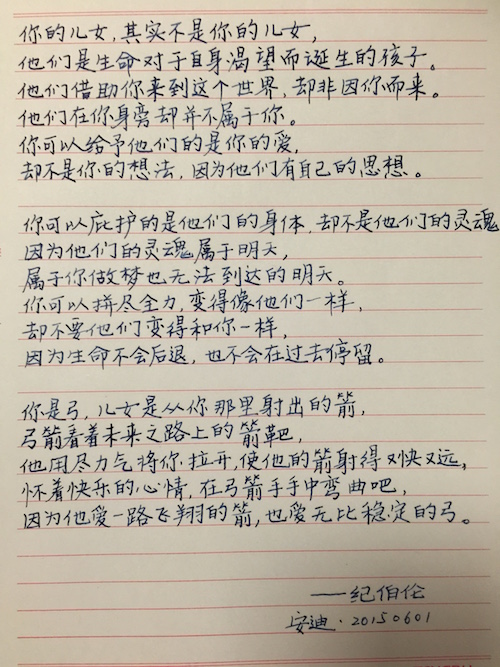 你的儿女,其实不是你的儿女,
他们是生命对于自身渴望而诞生的孩子。
他们借助你来到这个世界,却非因你而来。
他们在你身旁却并不属于你。
你可以给予他们的是你的爱,
却不是你的想法,因为他们有自己的思想。
你可以庇护的是他们的身体,却不是他们的灵魂
因为他们的灵魂属于明天,
属于你做梦也无法到达的明天。
你可以拼尽全力,变得像他们一样,
却不要他们变得和你一样,
因为生命不会后退,也不会在过去停留。
你是弓,儿女是从你那里射出的箭,
弓箭看着未来之路上的箭靶,
他用尽力气将你拉开,使他的箭射得又快又远,
怀着快乐的心情,在弓箭手手中弯曲吧,
因为他爱一路飞翔的箭,也爱无比稳定的弓。
——纪伯伦
安迪·20150601